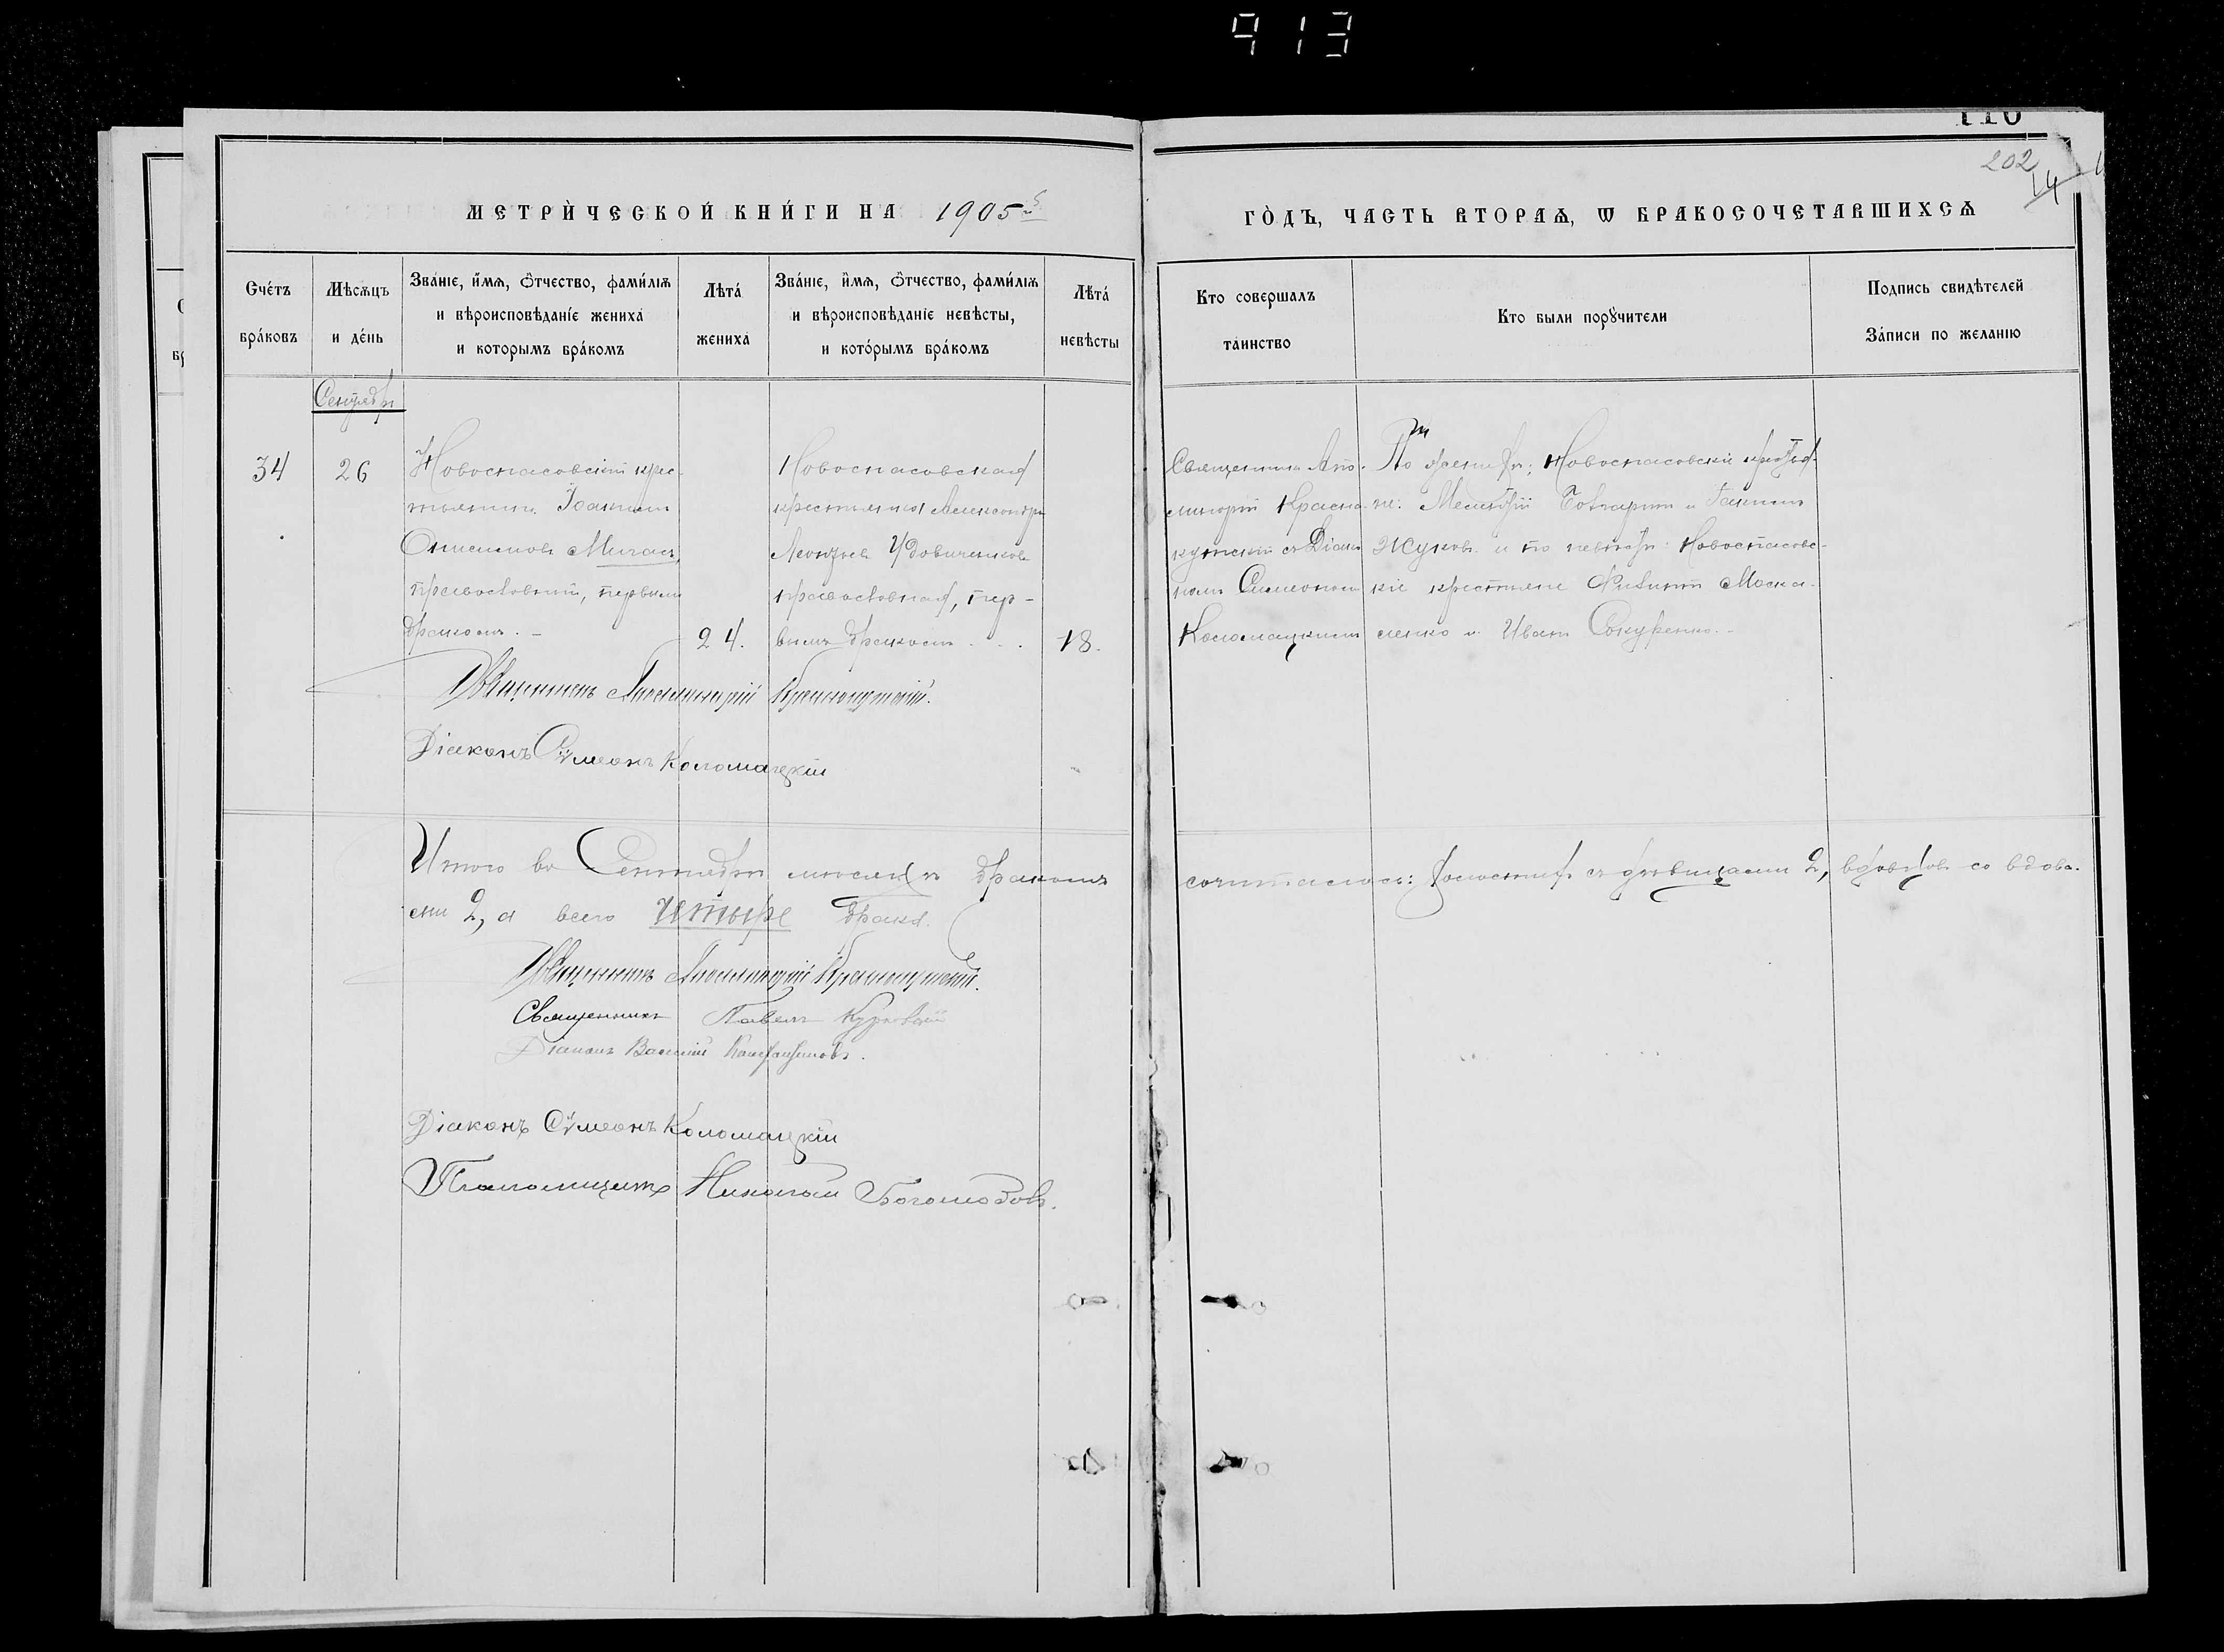 913
202
14
МЕТРИ́ЧЕСКОЙ КНИ́ГИ НА 1905
ГО́ДЪ, ЧАСТЬ ВТОРАѦ, Ѡ БРАКОСОЧЕТАВШИХСѦ
Сче́тъ бра́ковъ
Мѣ́сѧцъ и де́нь
Зва́нїе, и́мѧ, ѻ́тчество, фами́лїѧ и вѣроисповѣ́данїе жениха̀ и которымъ бра́комъ
Лѣта̀ жениха̀
Зва́нїе, и́мѧ, ѻ́тчество, фами́лїѧ и вѣроисповѣ́данїе невѣ́сты, и кото́рымъ бра́комъ
Лѣта̀ невѣ́сты
Кто совершалъ та́инство
Кто были порꙋчители
Подпись свидѣтелей За́писи по желанію
Сентябрь
34
26
Новоспасовскій крес-
тьянинъ Іоаннъ
Онисимовъ Мигаль,
православный, первымъ
бракомъ. –
24.
Новоспасовская
крестьянка Александра
Леонтьева Удовиченкова
православная, пер-
вымъ бракомъ . . .
18.
Священникъ Апо-
линарій Красно-
кутскій съ Діако-
номъ Симеономъ
Коломацкимъ
По женихѣ: Новоспасовскіе крестья-
не: Мелитій
Жуковъ и по невѣстѣ: Новоспасовс-
кіе крестьяне Филиппъ Моска-
ленко и Иванъ Сокуренко. –
Священникъ Аполлинарій Краснокутскій.
Діаконъ Сѵмеонъ Коломацкій
Итого въ Сентябрѣ мѣсяцѣ бракомъ сочеталось: холостыхъ съ дѣвицами 2, вдовцовъ со вдова-
ми 2, а всего четыре брака.
Священникъ Аполлинарій Краснокутскій.
Священникъ Павелъ
Діаконъ Василій
Діаконъ Сѵмеонъ Коломацкій
Псаломщикъ Николай Богомодовъ.